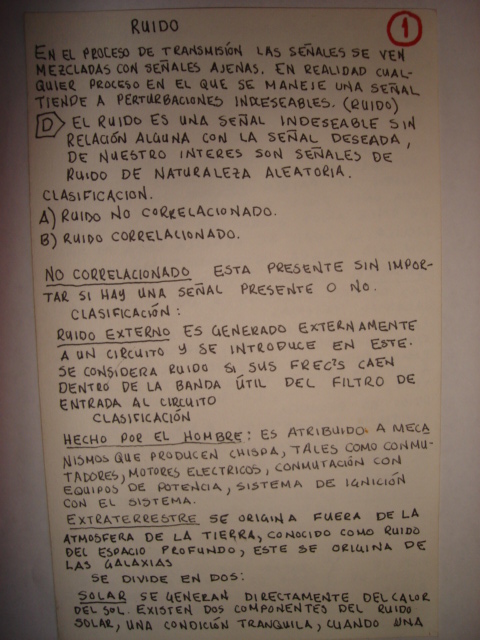 RUIDO
1
EN EL PROCESO DE TRANSMISIÓN LAS SEÑALES SE VEN
MEZCLADAS CON SEÑALES AJENAS. EN REALIDAD CUAL-
QUIER PROCESO EN EL QUE SE MANEJE UNA SEÑAL
TIENDE A PERTURBACIONES INDESEABLES. (RUIDO)
D EL RUIDO ES UNA SEÑAL INDESEABLE SIN
RELACIÓN ALGUNA CON LA SEÑAL DESEADA,
DE NUESTRO INTERES SON SEÑALES DE
RUIDO DE NATURALEZA ALEATORIA.
CLASIFICACION.
A) RUIDO NO CORRELACIONADO.
B) RUIDO CORRELACIONADO.
NO CORRELACIONADO ESTA PRESENTE SIN IMPOR-
TAR SI HAY UNA SEÑAL PRESENTE O NO.
CLASIFICACIÓN:
RUIDO EXTERNO ES GENERADO EXTERNAMENTE
A UN CIRCUITO Y SE INTRODUCE EN ESTE.
SE CONSIDERA RUIDO SI SUS FREC²S CAEN
DENTRO DE LA BANDA ÚTIL DEL FILTRO DE
ENTRADA AL CIRCUITO
CLASIFICACIÓN
HECHO POR EL HOMBRE: ES ATRIBUIDO A MECA
NISMOS QUE PRODUCEN CHISPA, TALES COMO CONMU-
TADORES, MOTORES ELECTRICOS, CONMUTACIÓN CON
EQUIPOS DE POTENCIA, SISTEMA DE IGNICIÓN
CON EL SISTEMA.
EXTRATERRESTRE SE ORIGINA FUERA DE LA
ATMOSFERA DE LA TIERRA, CONOCIDO COMO RUIDO
DEL ESPACIO PROFUNDO, ESTE SE ORIGINA DE
LAS GALAXIAS
SE DIVIDE EN DOS:
SOLAR SE GENERAN DIRECTAMENTE DEL CALOR
DEL SOL. EXISTEN DOS COMPONENTES DEL RUIDO
SOLAR, UNA CONDICIÓN TRANQUILA, CUANDO UNA